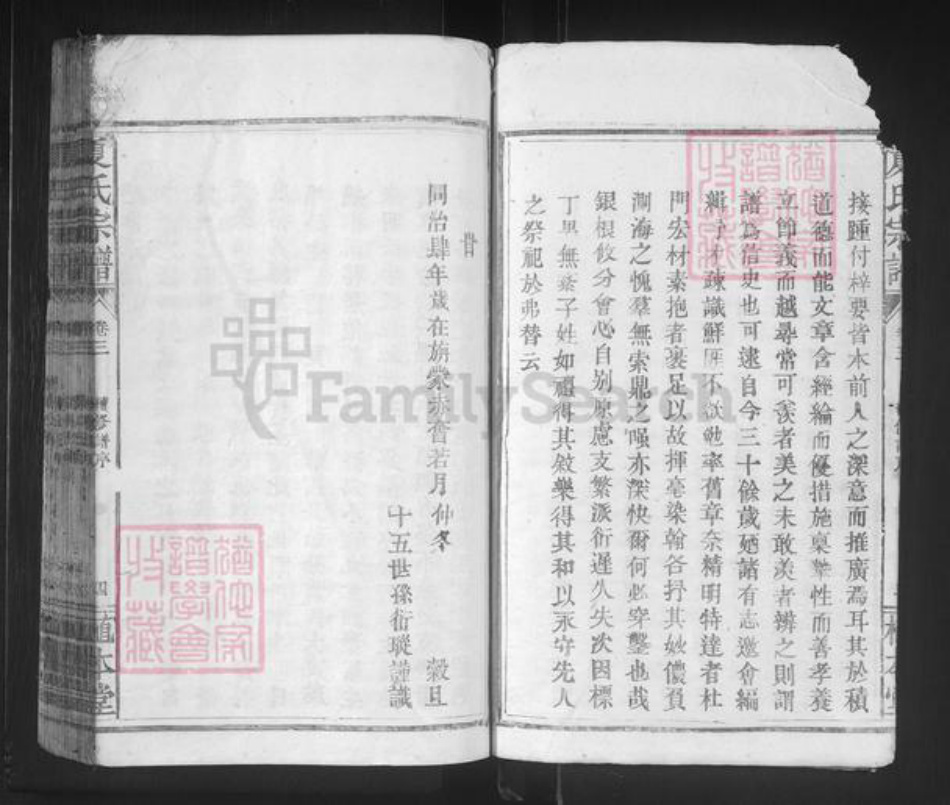 接踵付梓要皆本前人之深意而推廣焉耳其於積
道德而能文章含經綸而優措施稟摯性而善孝養
立節義而越尋常可羨者美之未敢羨者辨之則謂
譜為信史也可逮自今三十餘歲廼諸有志邀會編
輯予才疎識鮮匪不欲勉率舊章奈精明特達者杜
門宏材素抱者裹足以故揮毫染翰各抒其妙儂負
測海之愧羣無索鼎之嗤亦深快爾何必穿鑿也哉
銀根攸分會心自别原慮支繁派衍遲久失次因標
丁界無紊子姓如頫得其敘樂得其和以永守先人
之祭祀於弗替云
廿
同治肆年歲在旃蒙赤奮若月仲冬 穀旦
十五世孫衍璇謹識
夏氏宗譜 卷三 修譜序 四 植本堂
夏氏宗譜
猶他家譜學會收藏
猶他家譜學會收藏
FamilySearch